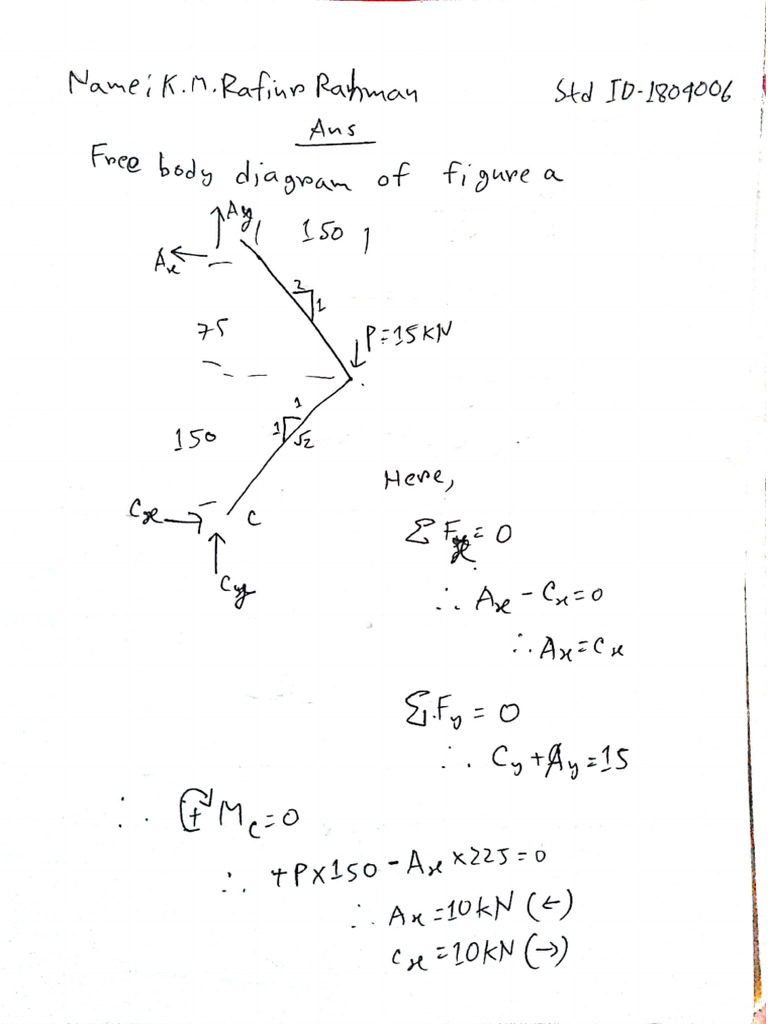 Name: K.M. Rafiur Rahman
Std ID-1804006
Ans
Free body diagram of figure a
Ay
150
Ax
2
1
75
P=15KN
1
1
√2
150
Cx
C
Cy
Here,
ΣFx=0
∴ Ax - Cx=0
∴ Ax=Cx
Σ.Fy = 0
∴ Cy+Ay=15
∴ + Mc=0
∴ +Px150 - Ax x225=0
∴ Ax=10KN (←)
Cx=10KN (→)